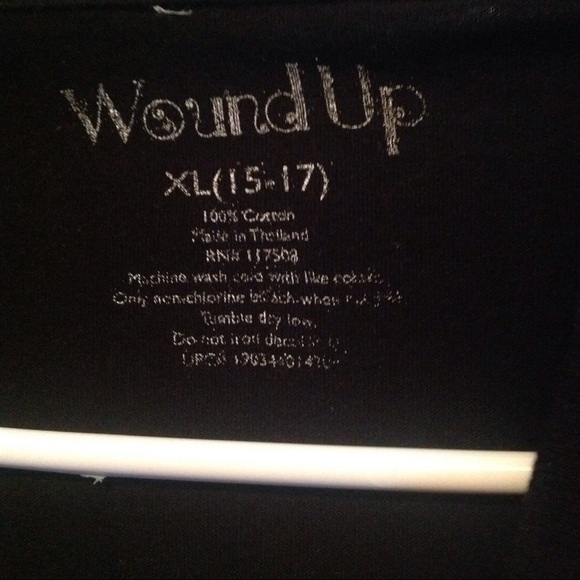 Wound Up
XL(15-17)
100% Cotton
Made in Thailand
RN# 117508
Machine wash cold with like colors.
Only non-chlorine bleach when
Tumble dry low.
Do not iron
UPC#